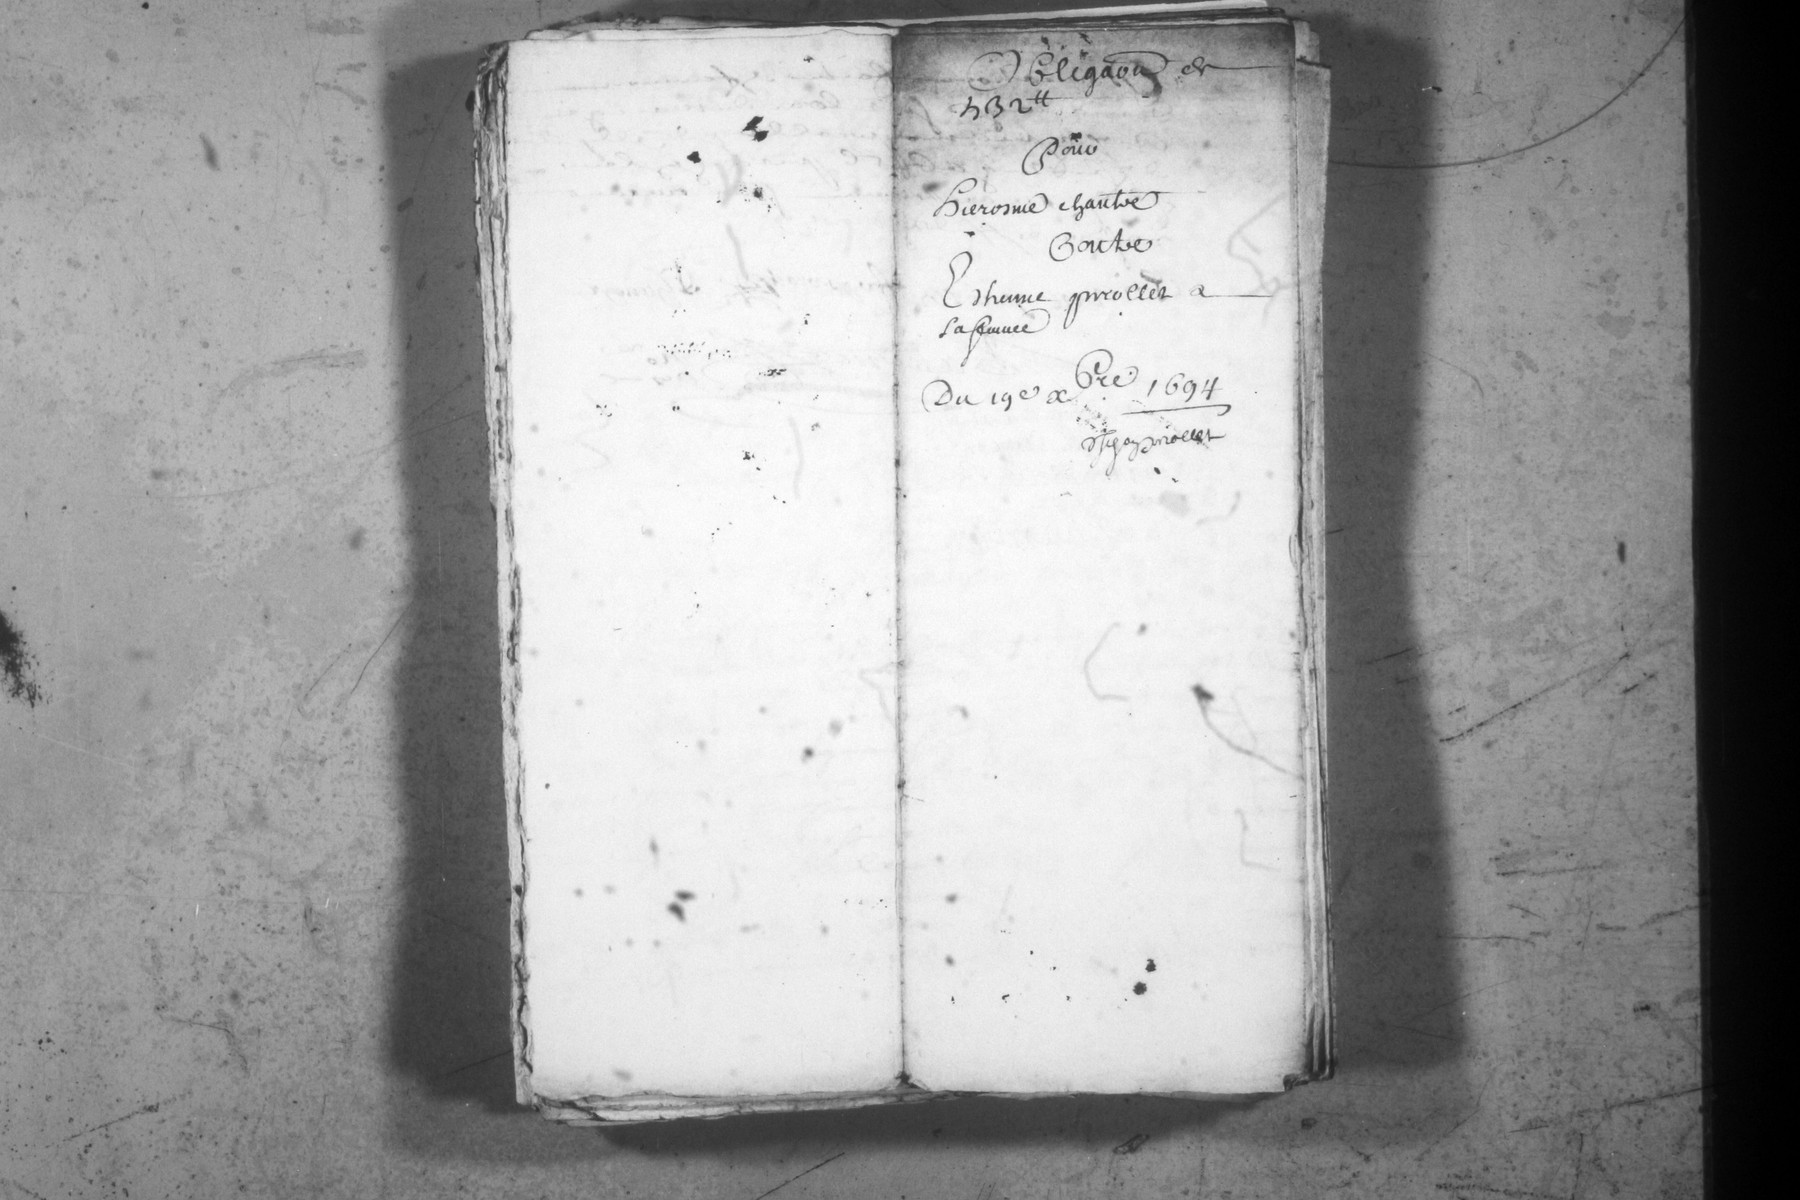 Obligaon de
532tt
Pour
hierosme chantre
Contre
Estienne pivollet &
sa femme
Du 19e xbre 1694